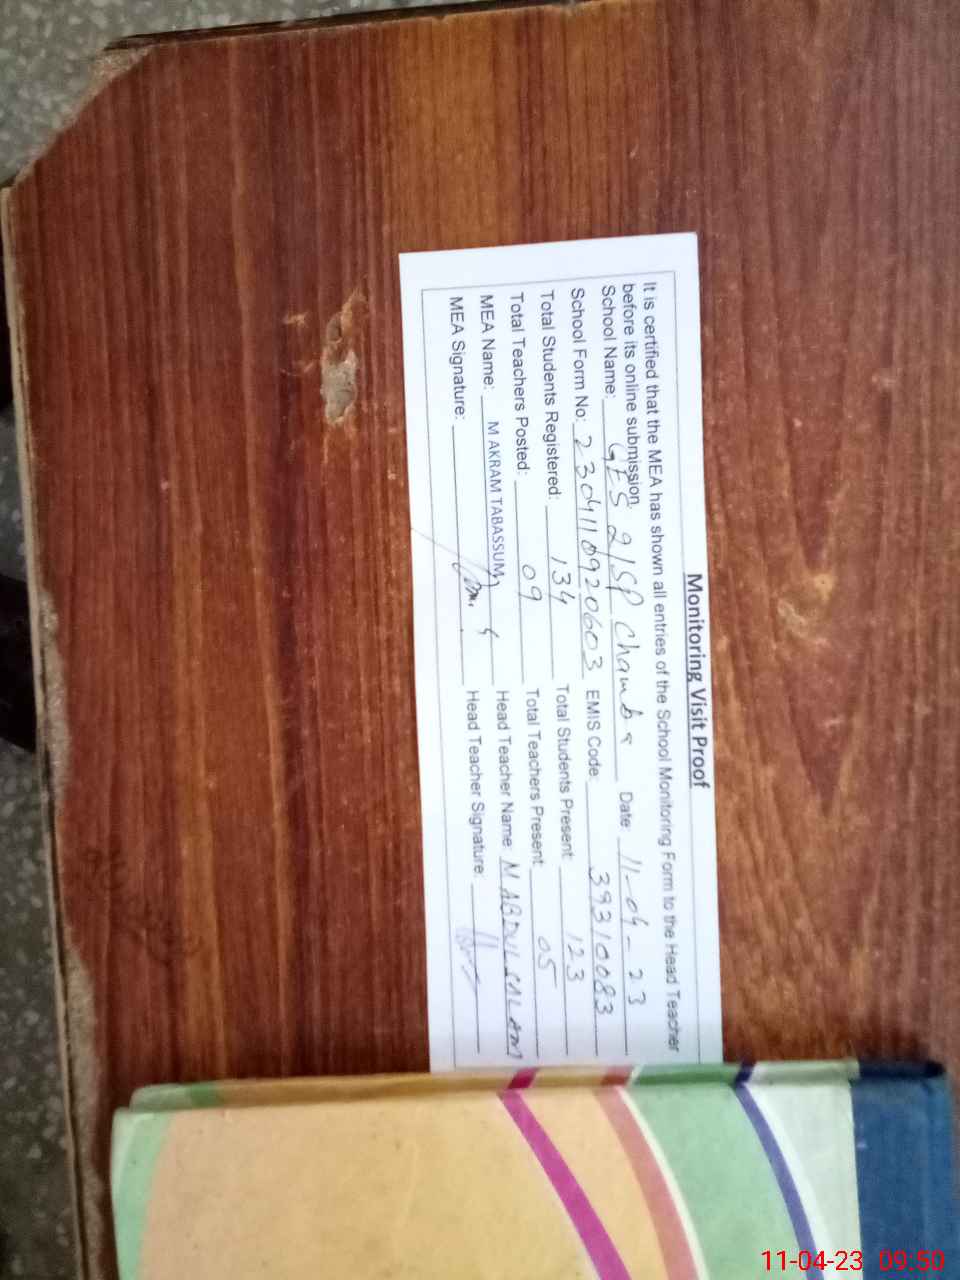 Monitoring Visit Proof
It is certified that the MEA has shown all entries of the School Monitoring Form to the Head Teacher
before its online submission.
School Name: GES 2/SP Chamba Date 11-04-23
School Form No: 2304110920603 EMIS Code: 39310083
Total Students Registered: 134 Total Students Present: 123
Total Teachers Posted: 09 Total Teachers Present: 05
MEA Name: M AKRAM TABASSUM Head Teacher Name: M ABDUL SALAM
MEA Signature: Head Teacher Signature:
11-04-23 09:50